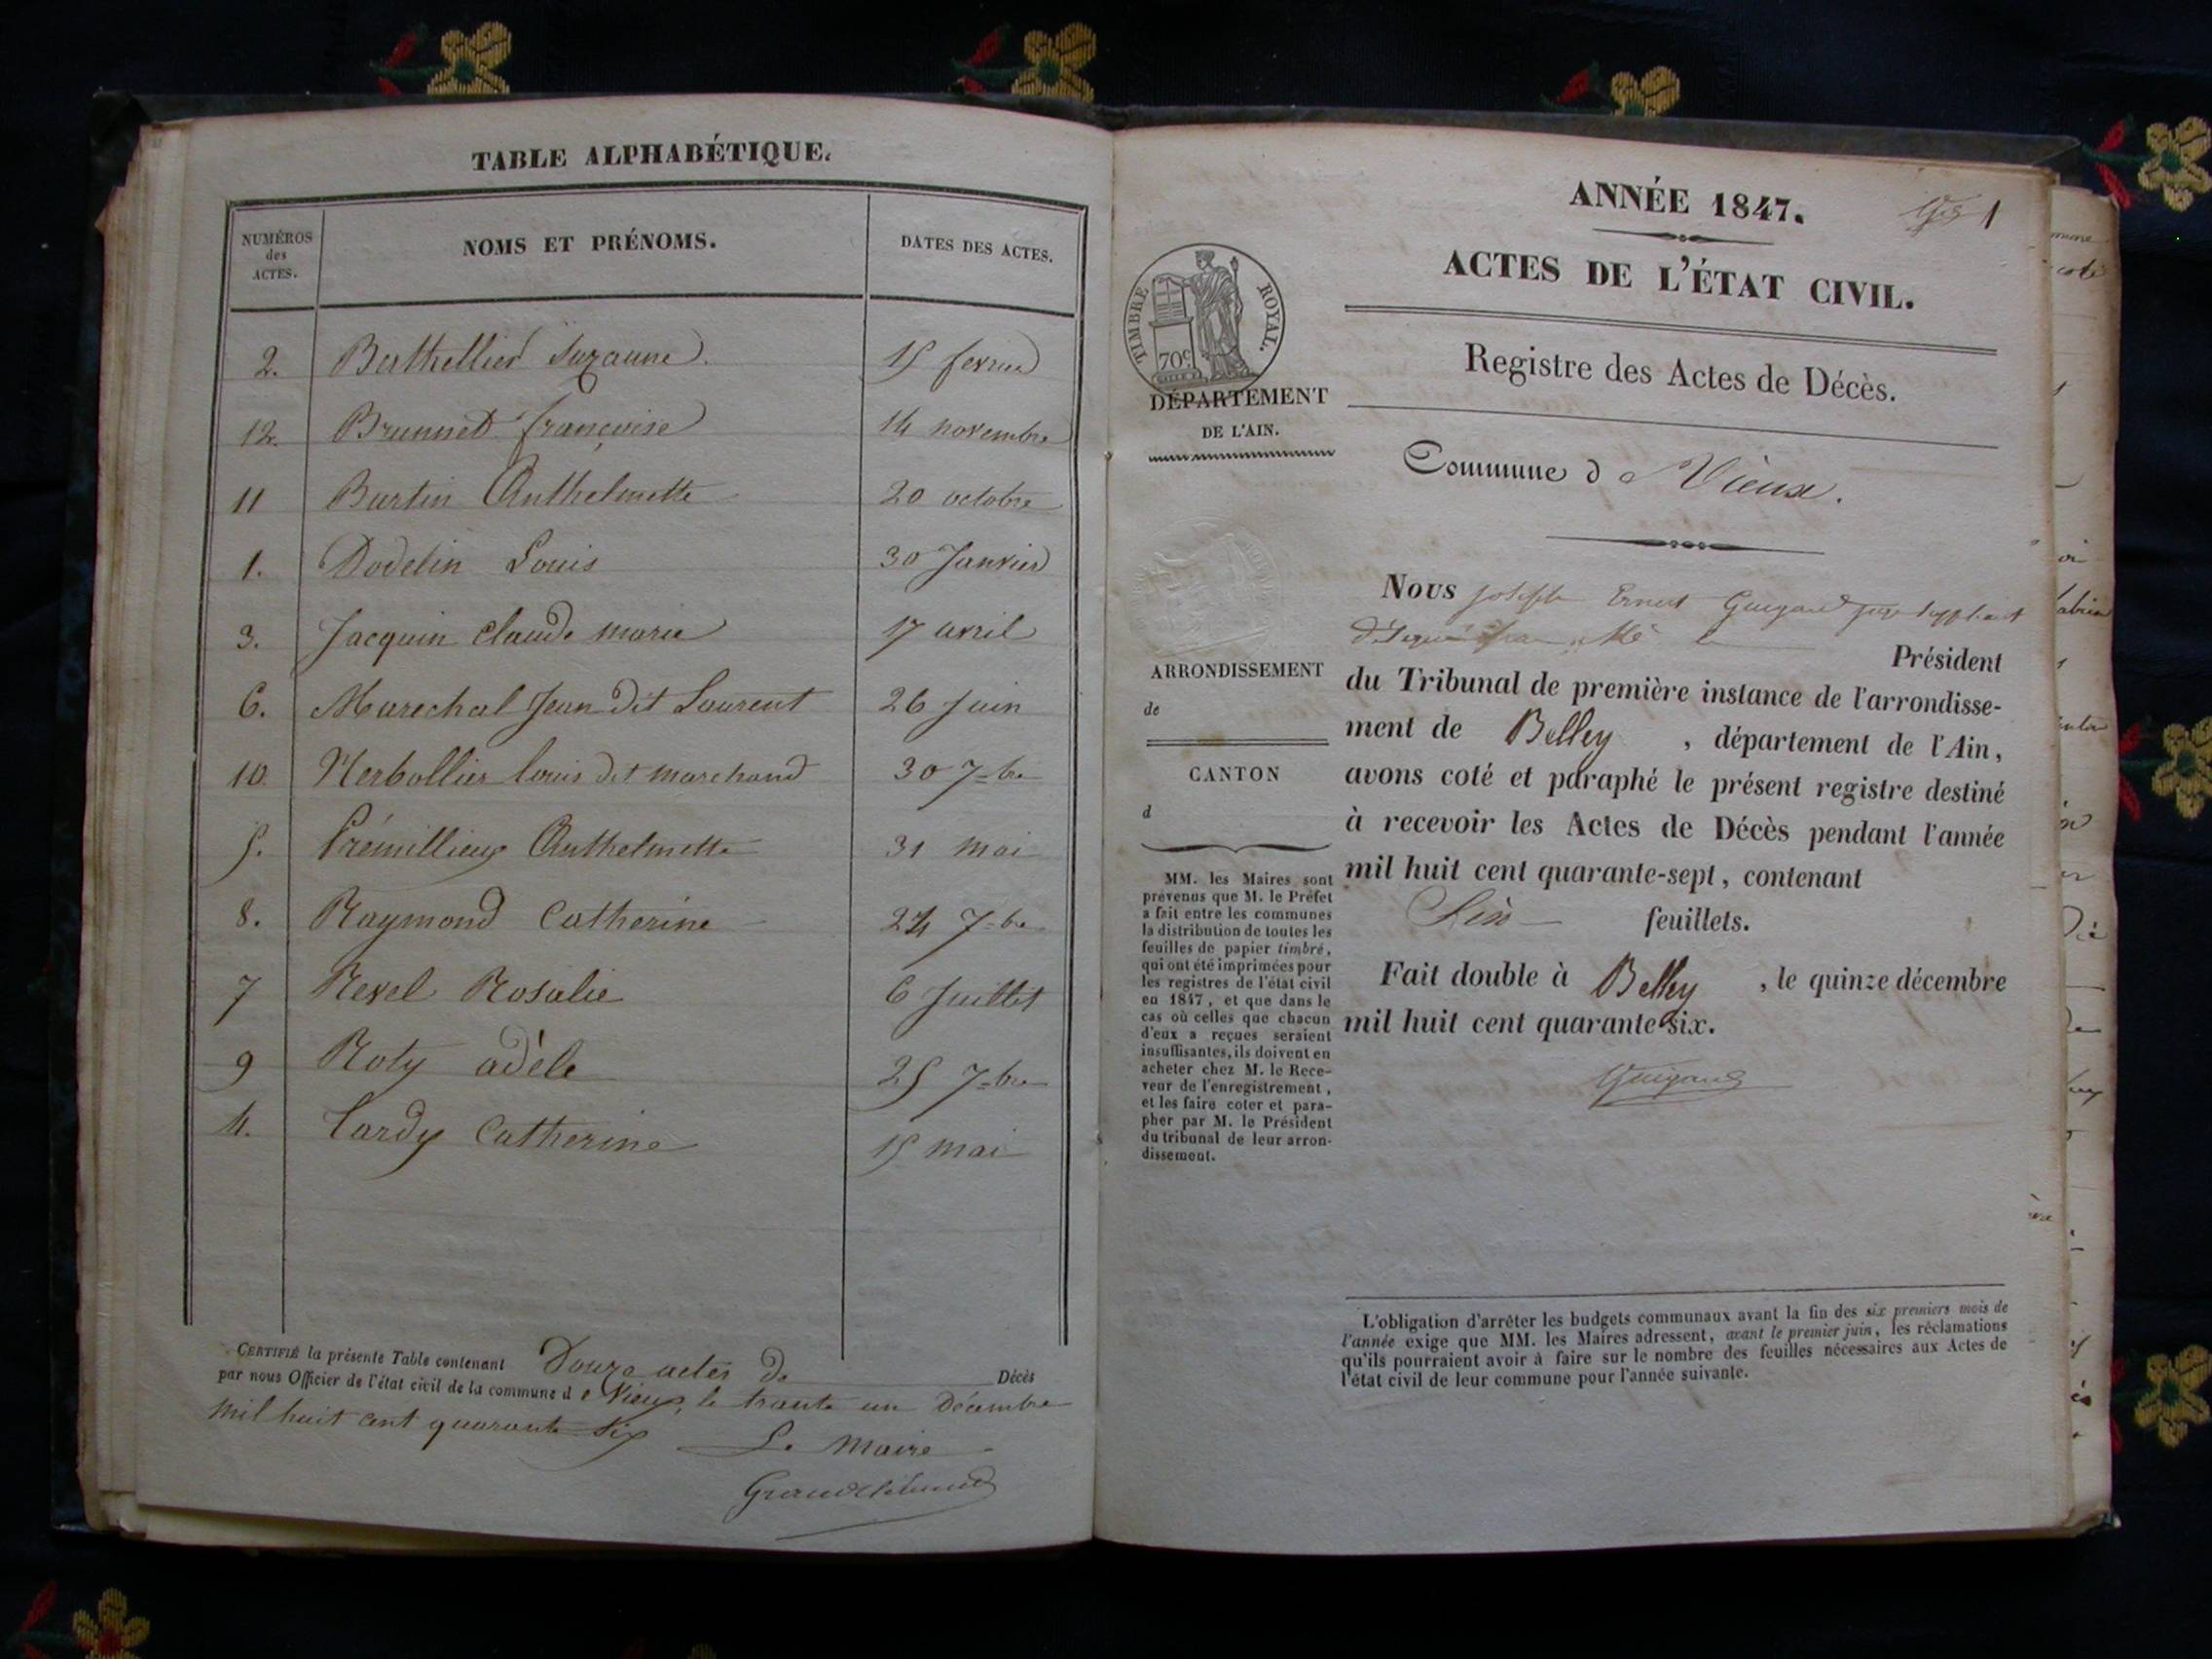 TABLE ALPHABÉTIQUE.
NUMÉROS
des
ACTES.
NOMS ET PRÉNOMS.
DATES DES ACTES.
2. Berthellier Suzanne 15 fevrier
12. Brunnet françoise 14 novembre
11 Burtin Anthelmette 20 octobre
1. Dodelin Louis 30 Janvier
3. Jacquin Claude marie 17 avril
6. Marechal Jean dit Laurent 26 Juin
10. Nerbollier louis dit marchand 30 7-bre
5. Prémillieux Anthelmette 31 mai
8. Raymond Catherine 24 7-bre
7 Revel Rosalie 6 Juillet
9 Roty adèle 25 7-bre
4. Tardy Catherine 15 mai
CERTIFIÉ la présente Table contenant Douze actes de Décès
par nous Officier de l'état civil de la commune d e Vieux, le trente un Décembre
mil huit cent quarante six
Le Maire
ANNÉE 1847.
1
ACTES DE L'ÉTAT CIVIL.
TIMBRE ROYAL.
70c.
DÉPARTEMENT
DE L'AIN.
Registre des Actes de Décès.
Commune d e Vieux.
Nous Joseph Ernest Guigard juge suppléant
Président
du Tribunal de première instance de l'arrondisse-
ment de Belley , département de l'Ain,
avons coté et paraphé le présent registre destiné
à recevoir les Actes de Décès pendant l'année
mil huit cent quarante-sept, contenant
feuillets.
Fait double à Belley , le quinze décembre
mil huit cent quarante six.
Guigard
ARRONDISSEMENT
de
CANTON
d
MM. les Maires sont
prévenus que M. le Préfet
a fait entre les communes
la distribution de toutes les
feuilles de papier timbré,
qui ont été imprimées pour
les registres de l'état civil
en 1847, et que dans le
cas où celles que chacun
d'eux a reçues seraient
insuffisantes, ils doivent en
acheter chez M. le Rece-
veur de l'enregistrement,
et les faire coter et para-
pher par M. le Président
du tribunal de leur arron-
dissement.
L'obligation d'arrêter les budgets communaux avant la fin des six premiers mois de
l'année exige que MM. les Maires adressent, avant le premier juin, les réclamations
qu'ils pourraient avoir à faire sur le nombre des feuilles nécessaires aux Actes de
l'état civil de leur commune pour l'année suivante.